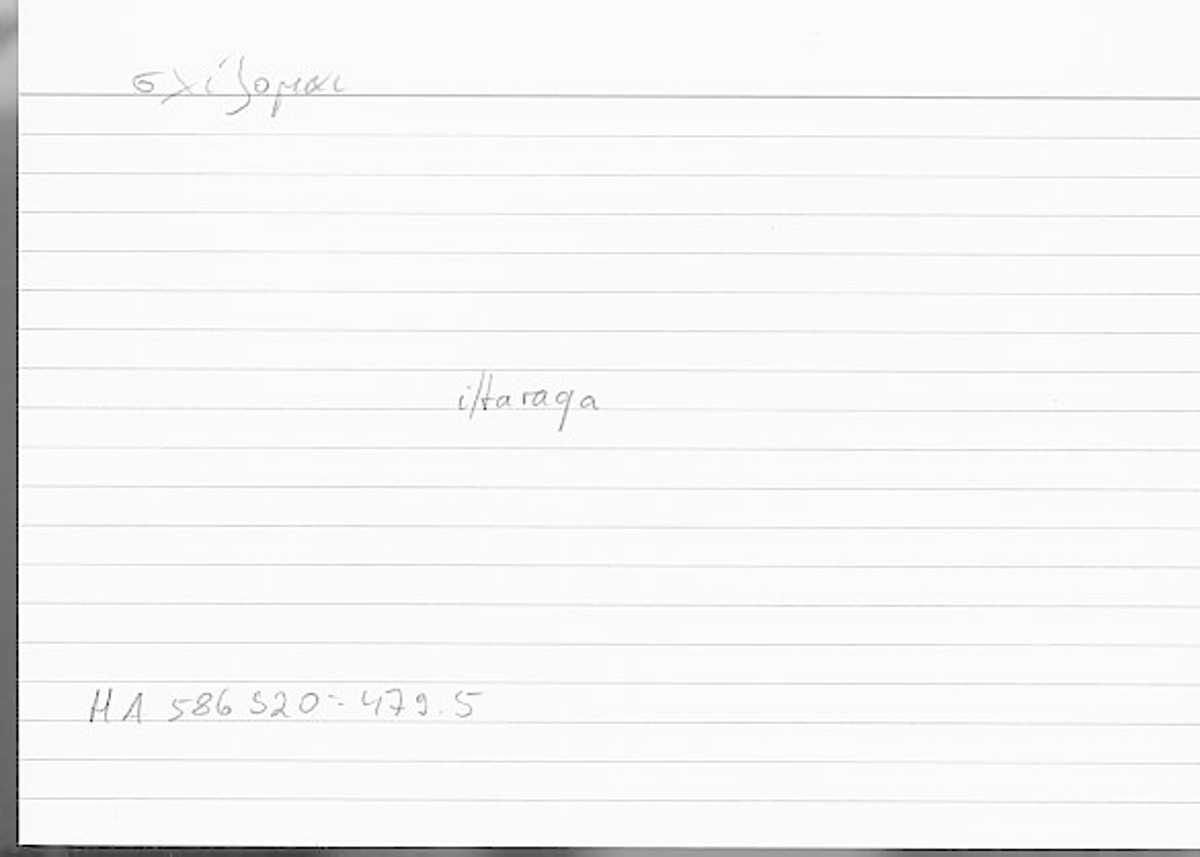 σχίζομαι
iftaraqa
HA 586 b20 = 479.5